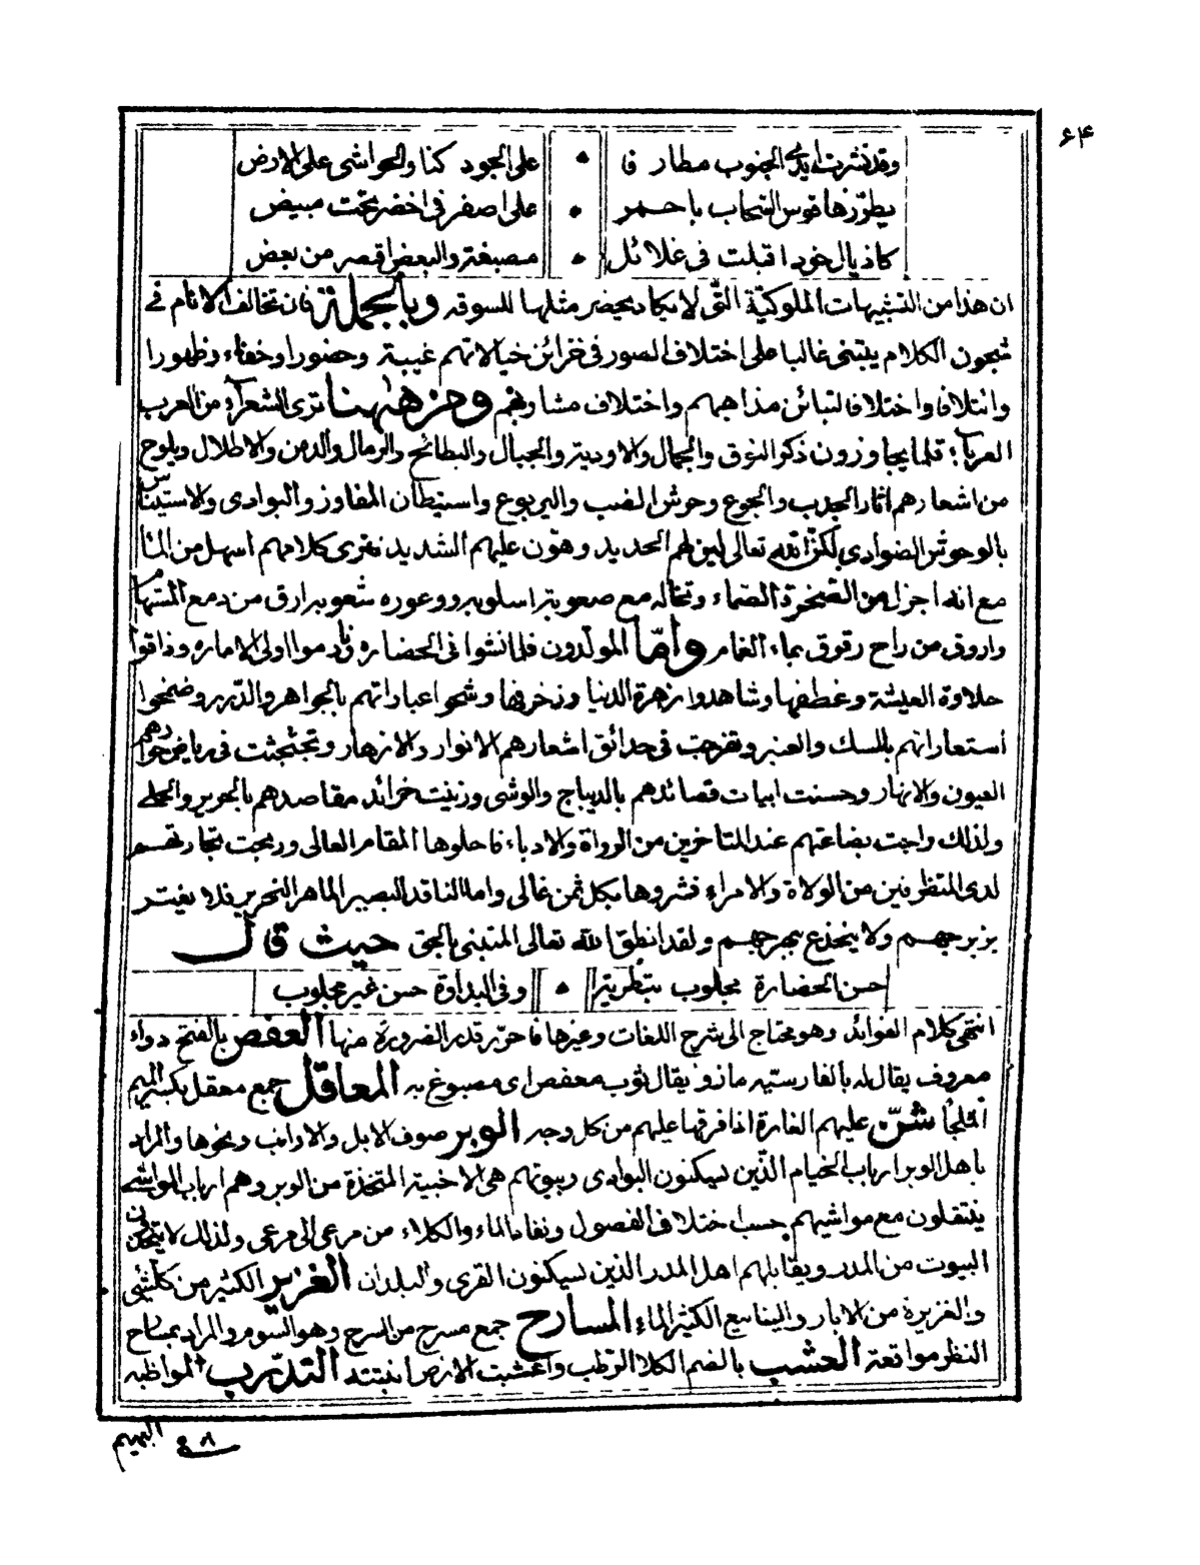 ۶۴
وقد نشرت ايدي الجنوب مطارفا • على الجود كنا والحواشى على الارض
يطرّزها قوس السّحاب باحمر • على اصفر فى اخضر تحت مبيض
كاذيال خود اقبلت فى غلائل • مصبغة والبعض اقصر من بعض
ان هذا من التشبيهات الملوكيّة التّى لا يكاد يحضر مثلها للسوقه وبالجملة فان تخالف الانام فى
شجون الكلام يبتنى غالبا على اختلاف الصور فى خزائن خيالاتهم غيبة وحضورا وخفاء وظهورا
وائتلافا واختلافا لتبائن مذاهبهم واختلاف مشاربهم ومن ههنا ترى الشعرآء من العرب
العرباء قلما يجاوزون ذكر النوق والجمال والاودية والجبال والبطائح والرمال والدمن والاطلال ويلوح
من اشعارهم اثار الجدب والجوع وحوش الضب واليربوع واستيطان المفاوز والبوادى والاستيناس
بالوحوش الضوادى لكنّ الله تعالى لين لهم الحديد وهوّن عليهم الشديد فترى كلامهم اسهل من الماء
مع انه اجزل من الصّخرة الصّماء وتخاله مع صعوبة اسلوبه ووعوره شعوبه ارق من دمع المستهام
واروق من راح رقوق بماء الغمام وامّا المولّدون فلما نشوا فى الحضاره ونادموا اولى الاماره وذاقوا
حلاوة العيشة وغطفها وشاهدوا زهرة الدنيا وزخرفها وشحوا عباراتهم بالجواهر والدّرر وضمخوا
استعاراتهم بالمسك والعنبر وتفرجت فى حدائق اشعارهم الانوار والازهار وتجثجثت فى رياض حوارهم
العيون والانهار وحسنت ابيات قصائدهم بالديباج والوشى وزينت خرائد مقاصدهم بالحرير والحلى
ولذلك راجت بضاعتهم عند المتاخرين من الرواة والادباء فاحلوها المقام العالى وربحت تجارتهم
لدى المتظرفين من الولاة والامراء فشروها بكل ثمن غالى واما الناقد البصير الماهر النحرير فلا يغتر
بزبرجهم ولا ينخدع ببهرجهم ولقد انطق الله تعالى المتنبى بالحق حيث قال
حسن الحضارة مجلوب بتطرية • وفى البداوة حسن غير مجلوب
انتهى كلام الفوائد وهو محتاج الى شرح اللغات وغيرها فاحرّر قدر الضرورة منها العفص بالفتح دواء
معروف يقال له بالفارسيه مازو يقال ثوب معفص اى مصبوغ به المعاقل جمع معقل بكسر الميم
الملجأ شنّ عليهم الغارة اذا فرقها عليهم من كل وجه الوبر صوف الابل والارانب ونحوها والمراد
باهل الوبر ارباب الخيام الذّين يسكنون البوادى وبيوتهم هى الاخبية المتخذة من الوبر وهم ارباب المواشى
ينتقلون مع مواشيهم بحسب اختلاف الفصول ونفاد الماء والكلاء من مرعى الى مرعى ولذلك لا يتخذون
البيوت من المدر ويقابلهم اهل المدر الذين يسكنون القرى والبلدان الغزير الكثير من كل شئ
والغزيرة من الابار والينابيع الكثير الماء المسارح جمع مسرح من السرح وهو السوم والمراد بمسارح
النظر مواقعه العشب بالضم الكلاء الرطب واعشبت الارض انبتته التدرب المواظبه
البهيم